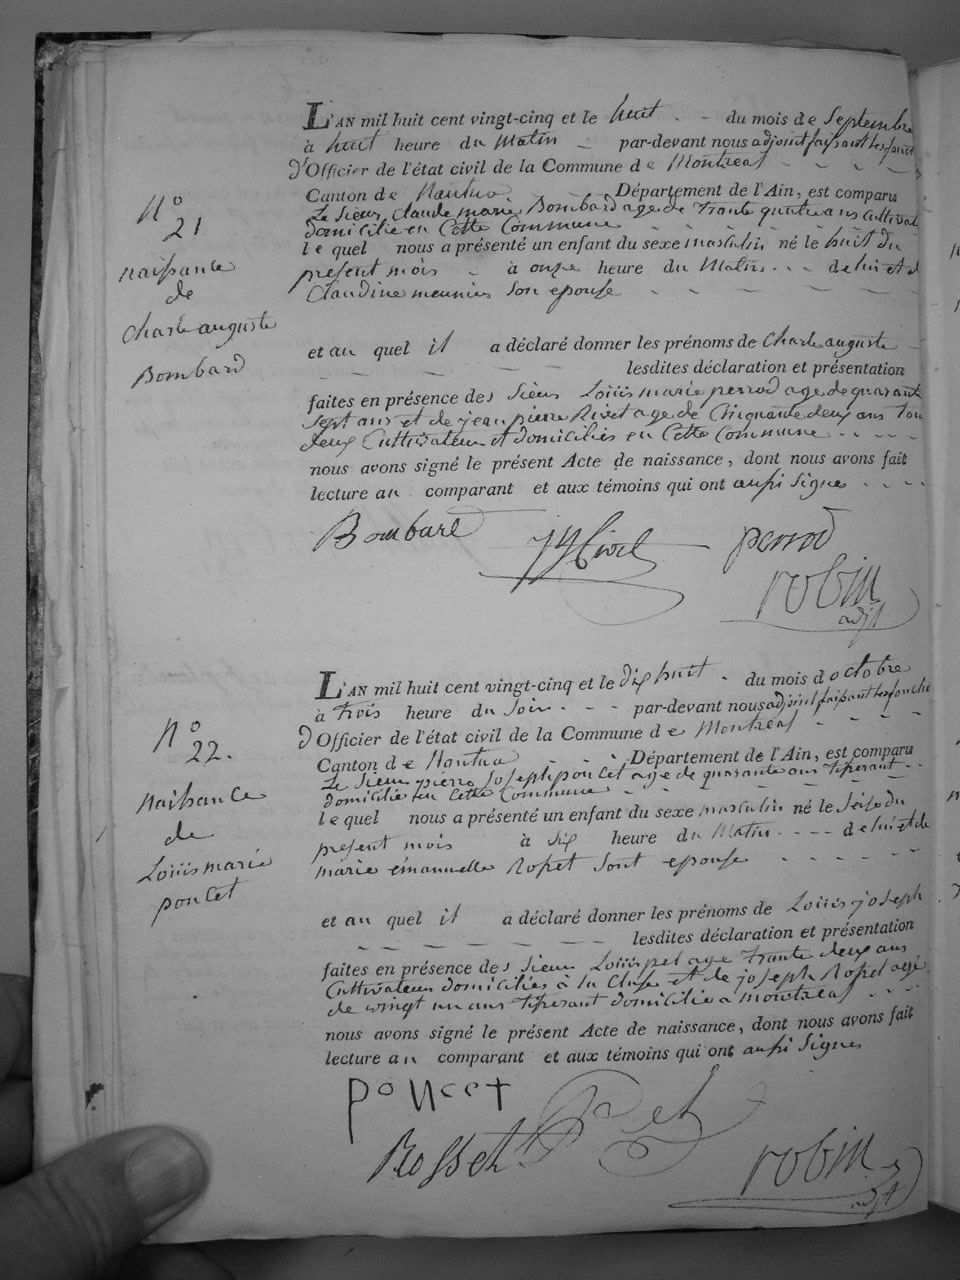 L'AN mil huit cent vingt-cinq et le huit du mois de Septembre
à huit heure du Matin par-devant nous adjoint faisant les fonct
d'Officier de l'état civil de la Commune de Montreal
Canton de Nantua Département de l'Ain, est comparu
Le Sieur Claude marie Bombard age de Trante quatre ans Cultivat
domicilié en Cette Commune
le quel nous a présenté un enfant du sexe masculin né le huit du
present mois à onze heure du Matin de lui et d
Claudine meunier Son epouse
et au quel il a déclaré donner les prénoms de Charle auguste
lesdites déclaration et présentation
faites en présence des Sieur Loüis marie perrod age de quarante
Sept ans et de jean pierre Rivet age de Cinquante deux ans tou
deux Cultivateur et domiciliés en Cette Commune
nous avons signé le présent Acte de naissance, dont nous avons fait
lecture au comparant et aux témoins qui ont aussi Signe
N° 21
naissance
de
Charle auguste
Bombard
Bombard perrod
robin
adjt
L'AN mil huit cent vingt-cinq et le dix huit du mois d octobre
à trois heure du Soir par-devant nous adjoint faisant les fonctio
D Officier de l'état civil de la Commune de Montreal
Canton de Nantua Département de l'Ain, est comparu
Le Sieur pierre Joseph poncet age de quarante ans tisserant
domicilié en Cette Commune
le quel nous a présenté un enfant du sexe masculin né le Seize du
present mois à Six heure du Matin de lui et de
marie émanuelle Rosset Sont epouse
et au quel il a déclaré donner les prénoms de Loüis joseph
lesdites déclaration et présentation
faites en présence des Sieur Loüis pet age Trante deux ans
Cultivateur domiciliés à la Cluse et de joseph Rosset agé
de vingt un ans tisserant domicilié a Montreal
nous avons signé le présent Acte de naissance, dont nous avons fait
lecture au comparant et aux témoins qui ont aussi Signes
N° 22.
naissance
de
Loüis marie
poncet
poncet
Rosset
robin
adjt